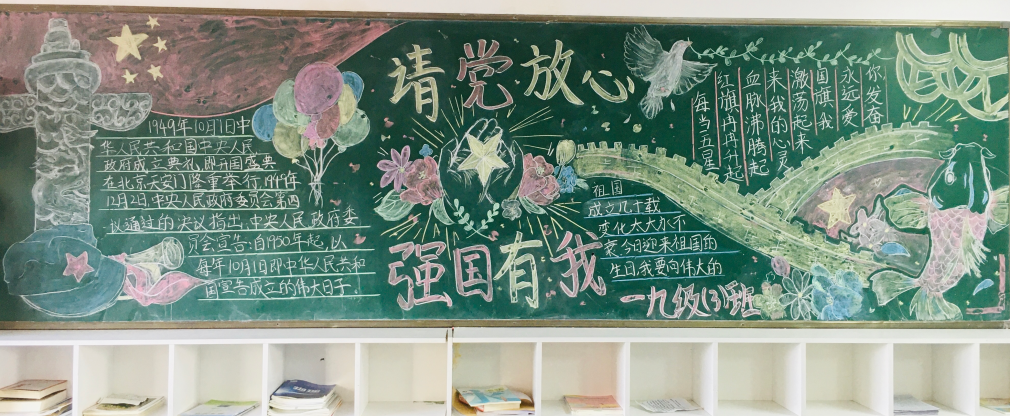 请党放心
强国有我
1949年10月1日中
华人民共和国中央人民
政府成立典礼,即开国盛典
在北京天安门隆重举行,1949年
12月2日,中央人民政府委员会第四
次通过的决议指出,中央人民政府委
员会宣告:自1950年起,以
每年10月1日即中华人民共和
国宣告成立的伟大日子
每当五星
红旗冉冉升起
血脉沸腾起
来我的心灵
激荡起来
国旗我
永远爱
你发奋
祖国
成立几十载
变化太大永不
衰,今日迎来祖国的
生日,我要向伟大的
一九级(3)班